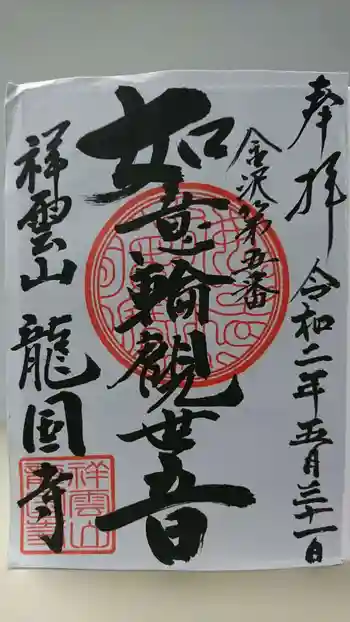 奉拝
令和二年五月三十一日
金沢第五番
如意輪観世音
祥雲山 龍国寺
祥雲山
龍国寺